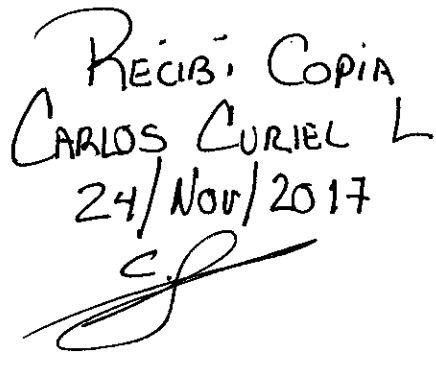 Recibí Copia
Carlos Curiel L
24/Nov/2017